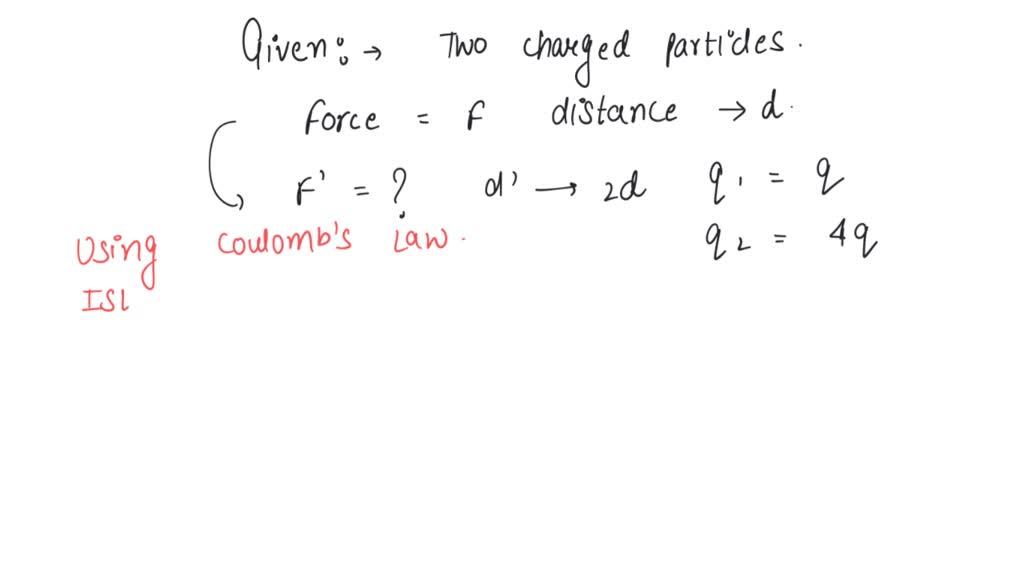 Given: → Two charged particles.
force = F distance → d.
F' = ? d' → 2d q1 = q
Using Coulomb's Law. q2 = 4q
ISL